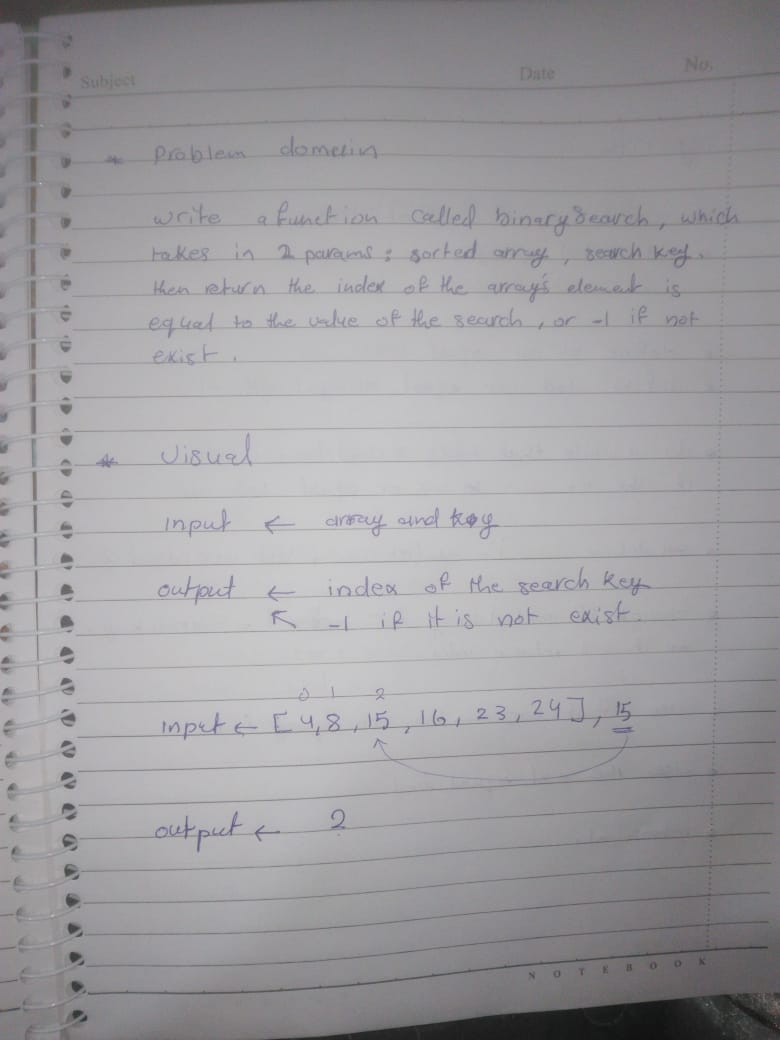 Subject Date No.
* Problem domain
write a function called binarySearch, which
takes in 2 params: sorted array, search key.
then return the index of the array's element is
equal to the value of the search, or -1 if not
exist.
* Visual
input ← array and key
output ← index of the search key
↖ -1 if it is not exist.
0 1 2
input ← [4,8,15,16,23,24], 15
output ← 2
NOTEBOOK